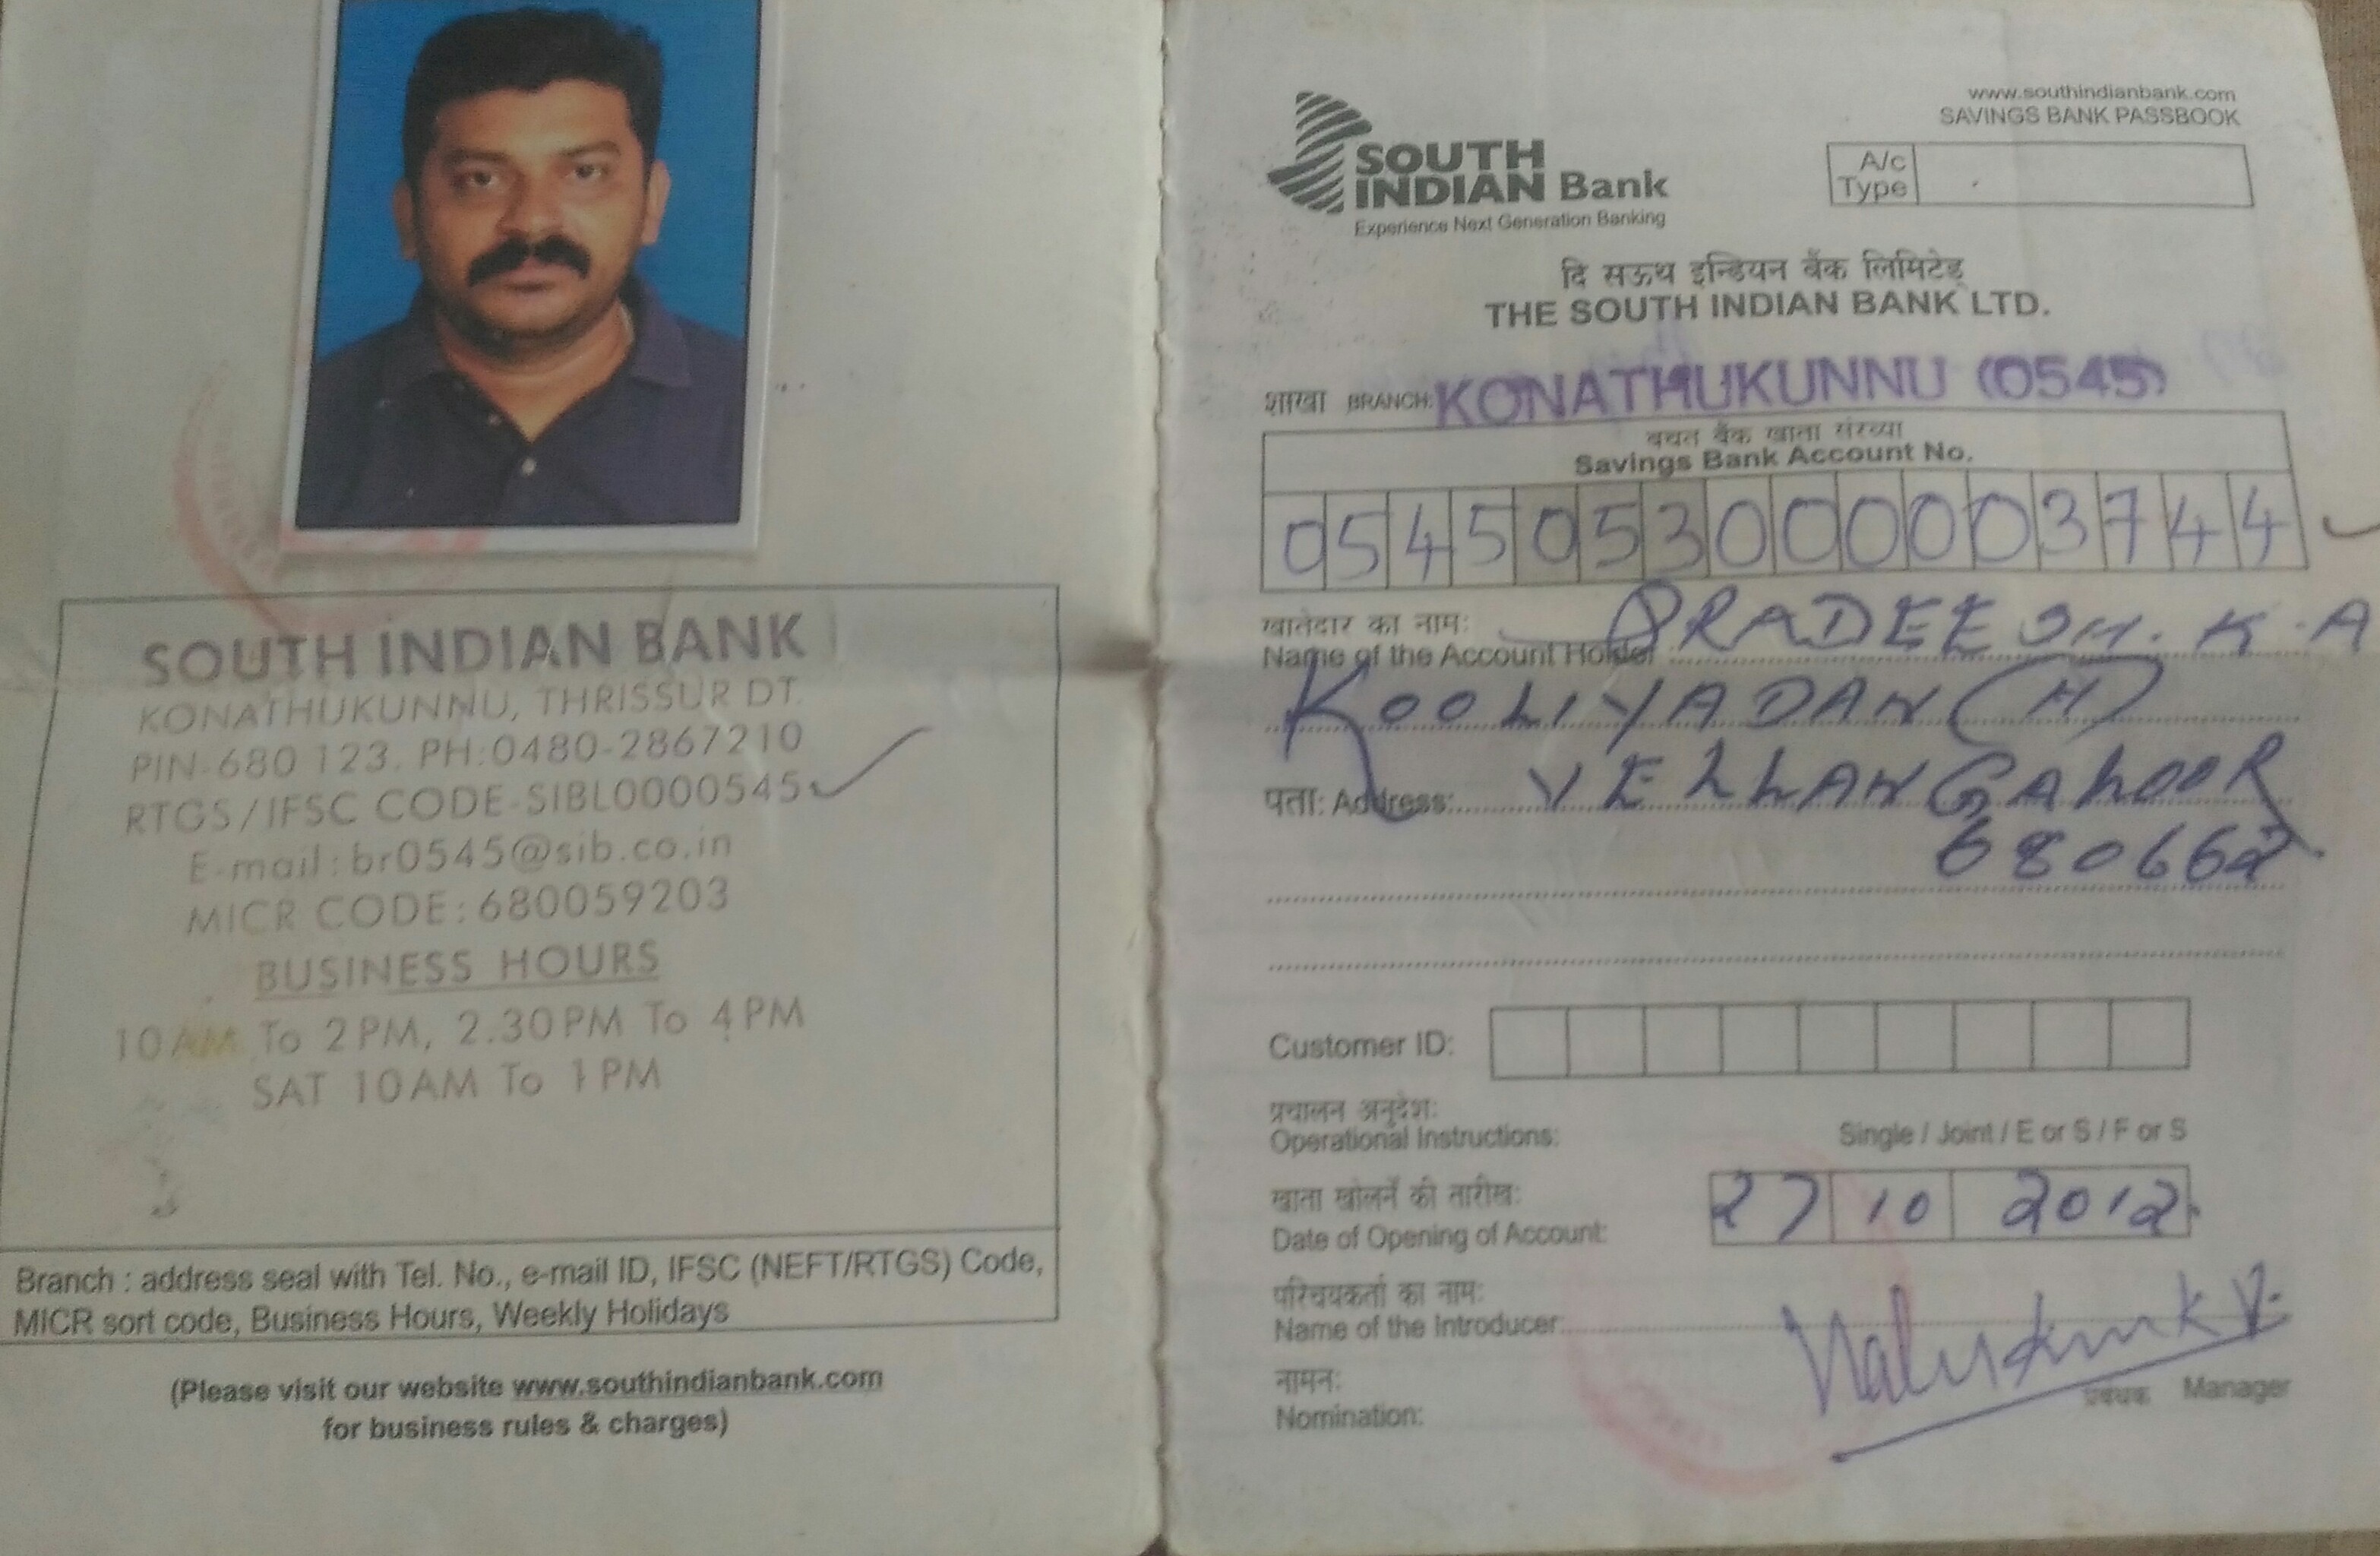 SOUTH INDIAN BANK
KONATHUKUNNU, THRISSUR DT.
PIN-680 123. PH:0480-2867210
RTGS/IFSC CODE-SIBL0000545
E-mail:br0545@sib.co.in
MICR CODE:680059203
BUSINESS HOURS
10AM To 2PM, 2.30PM To 4PM
SAT 10AM To 1PM
Branch : address seal with Tel. No., e-mail ID, IFSC (NEFT/RTGS) Code,
MICR sort code, Business Hours, Weekly Holidays
(Please visit our website www.southindianbank.com
for business rules & charges)
www.southindianbank.com
SAVINGS BANK PASSBOOK
SOUTH
INDIAN Bank
Experience Next Generation Banking
A/c
Type
दि सऊथ इन्डियन बैंक लिमिटेड
THE SOUTH INDIAN BANK LTD.
शाखा BRANCH: KONATHUKUNNU (0545)
बचत बैंक खाता संख्या
Savings Bank Account No.
0545053000003744
खातेदार का नाम:
Name of the Account Holder : PRADEESH. K. A
KOOLIYADAN (H)
पता: Address: VELLANGALOOR
680662
Customer ID:
प्रचालन अनुदेश:
Operational Instructions: Single / Joint / E or S / F or S
खाता खोलनें की तारीख:
Date of Opening of Account: 27 10 2012
परिचयकर्ता का नाम:
Name of the Introducer:
नामन:
प्रबंधक Manager
Nomination: